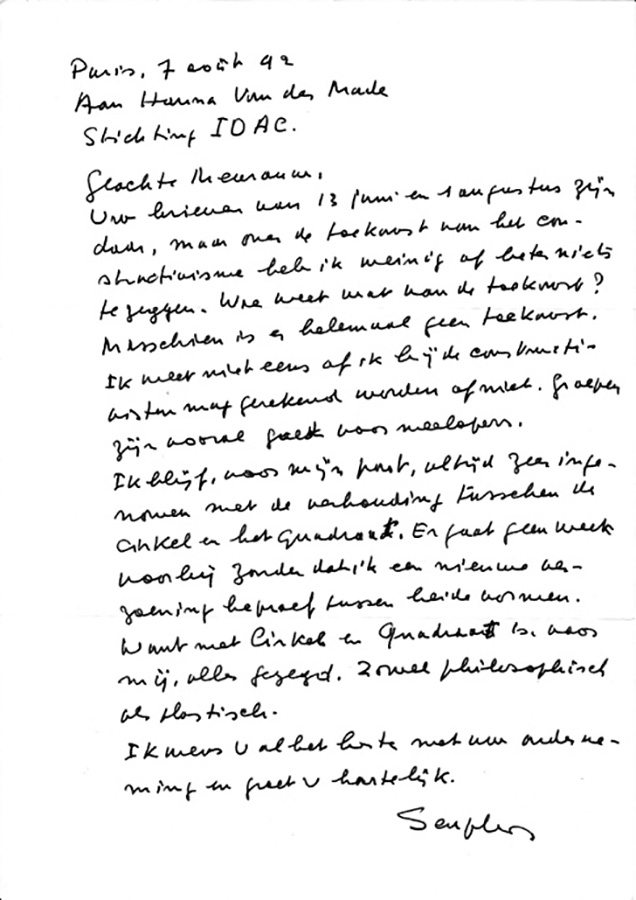 Paris, 7 août 92
Aan Hanna Van der Made
Stichting IDAC.
Geachte Mevrouw,
Uw brieven van 13 juni en 1 augustus zijn
daar, maar over de toekomst van het con-
structivisme heb ik weinig of beter niets
te zeggen. Wie weet wat van de toekomst?
Misschien is er helemaal geen toekomst.
Ik weet niet eens of ik bij de constructi-
visten mag gerekend worden of niet. Groepen
zijn vooral goed voor meelopers.
Ik blijf, voor mijn part, altijd zeer inge-
nomen met de verhouding tusschen de
Cirkel en het Quadraat. Er gaat geen week
voorbij zonder dat ik een nieuwe ver-
zoening beproef tussen beide vormen.
Want met Cirkel en Quadraat is, voor
mij, alles gezegd. Zowel philosophisch
als plastisch.
Ik wens U al het beste met uw onderne-
ming en groet U hartelijk.
Seuphor